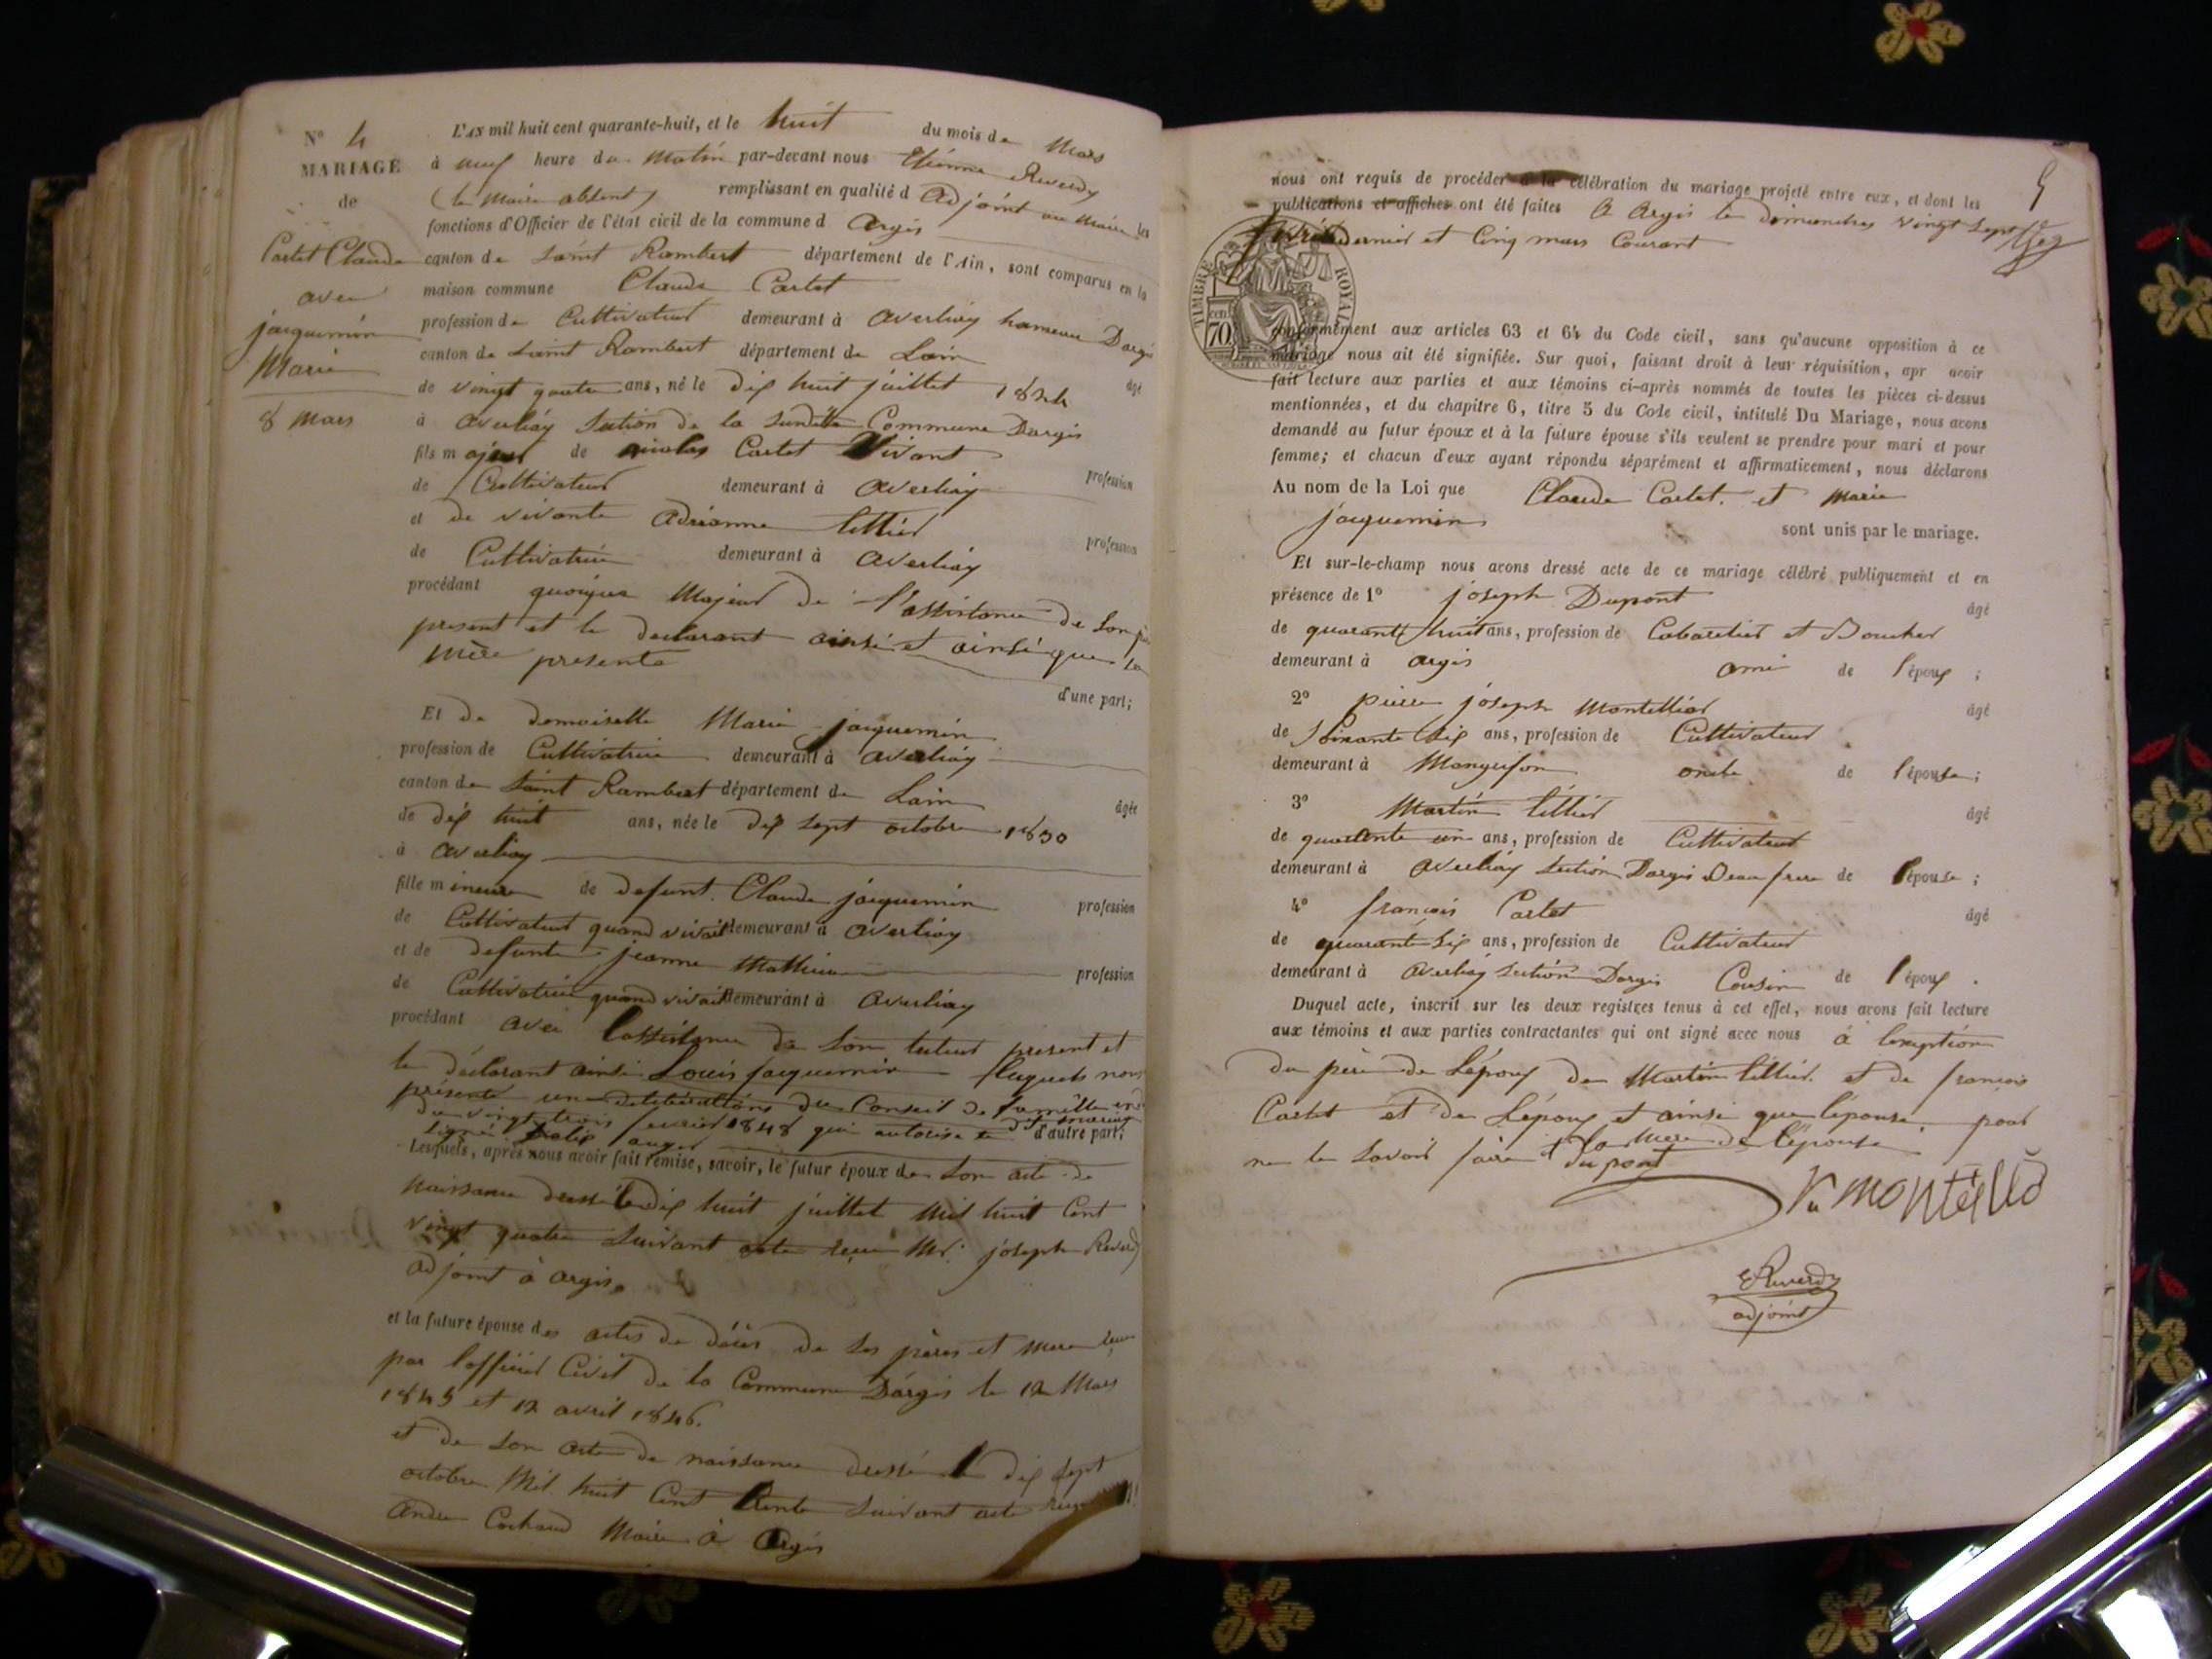 N° 4
MARIAGE
de
Cartet Claude
avec
jacquemin
Marie
8 Mars
L'AN mil huit cent quarante-huit, et le huit du mois de Mars
à neuf heure du Matin par-devant nous Etienne Reverdy
(le Maire absent) remplissant en qualité d Adjoint au Maire les
fonctions d'Officier de l'état civil de la commune d Argis
canton de Saint Rambert département de l'Ain, sont comparus en la
maison commune Claude Cartet
profession de Cultivateur demeurant à averliay hameau Dargis
canton de Saint Rambert département de Lain
de vingt quatre ans, né le dix huit juillet 1824 âgé
à averliay Section de la Susditte Commune Dargis
fils majeur de nicolas Cartet Vivant
profession
de Cultivateur demeurant à averliay
et de vivante Adrianne tillier
profession
de Cultivatrice demeurant à averliay
procédant quoique Majeur de l'assistance de Son père
present et le declarant ainsi et ainsi que la
mère presente
d'une part;
Et de demoiselle Marie jacquemin
profession de Cultivatrice demeurant à averliay
canton de Saint Rambert département de Lain
âgée
de dix huit ans, née le dix sept octobre 1830
à averliay
fille mineure de defunt Claude jacquemin
profession
de Cultivateur quand vivait demeurant à averliay
et de defunte jeanne Mathieu
profession
de Cultivatrice quand vivait demeurant à averliay
procédant avec lassistance de Son tuteur present et
le déclarant ainsi Louis jacquemin lequels nous
présente une deliberations du Conseil de famille
du vingt trois fevrier 1848 qui autorise le dit mariage
signé auger d'autre part;
Lesquels, après nous avoir fait remise, savoir, le futur époux de Son acte de
naissance dressé le dix huit juillet Mil huit Cent
vingt quatre Suivant acte reçu Mr. joseph Reverdy
adjoint à argis.
et la future épouse des actes de décès de Ses pères et mere reçu
par l'officier Civil de la Commune Dargis le 12 Mars
1845 et 12 avril 1846.
et de Son acte de naissance dressé le dix Sept
octobre Mil huit Cent trente Suivant acte reçu
andre Cochand Maire à Argis
5
nous ont requis de procéder à la célébration du mariage projeté entre eux, et dont les
publications et affiches ont été faites A Argis les dimanches vingt Sept
dernier et Cinq mars Courant
TIMBRE ROYAL
cen.
70
conformément aux articles 63 et 64 du Code civil, sans qu'aucune opposition à ce
mariage nous ait été signifiée. Sur quoi, faisant droit à leur réquisition, apr avoir
fait lecture aux parties et aux témoins ci-après nommés de toutes les pièces ci-dessus
mentionnées, et du chapitre 6, titre 5 du Code civil, intitulé Du Mariage, nous avons
demandé au futur époux et à la future épouse s'ils veulent se prendre pour mari et pour
femme; et chacun d'eux ayant répondu séparément et affirmativement, nous déclarons
Au nom de la Loi que Claude Cartet. et Marie
jacquemin sont unis par le mariage.
Et sur-le-champ nous avons dressé acte de ce mariage célébré publiquement et en
présence de 1° joseph Dupont âgé
de quarante huit ans, profession de Cabaretier et Boucher
demeurant à argis ami de l'époux ;
2° pierre joseph Montellier âgé
de Soixante Six ans, profession de Cultivateur
demeurant à Mongrifon oncle de l'épouse;
3° Martin tillier âgé
de quarante un ans, profession de Cultivateur
demeurant à averliay Section Dargis Beau frere de l'épouse;
4° françois Cartet âgé
de quarante Six ans, profession de Cultivateur
demeurant à averliay Section Dargis Cousin de l'époux.
Duquel acte, inscrit sur les deux registres tenus à cet effet, nous avons fait lecture
aux témoins et aux parties contractantes qui ont signé avec nous à lexception
du père de L'époux de Martin tillier. et de françois
Cartet et de L'époux et ainsi que l'épouse. pour
ne le Savoir faire et la Mere de l'épouse
Dupont
montellié
E Reverdy
adjoint